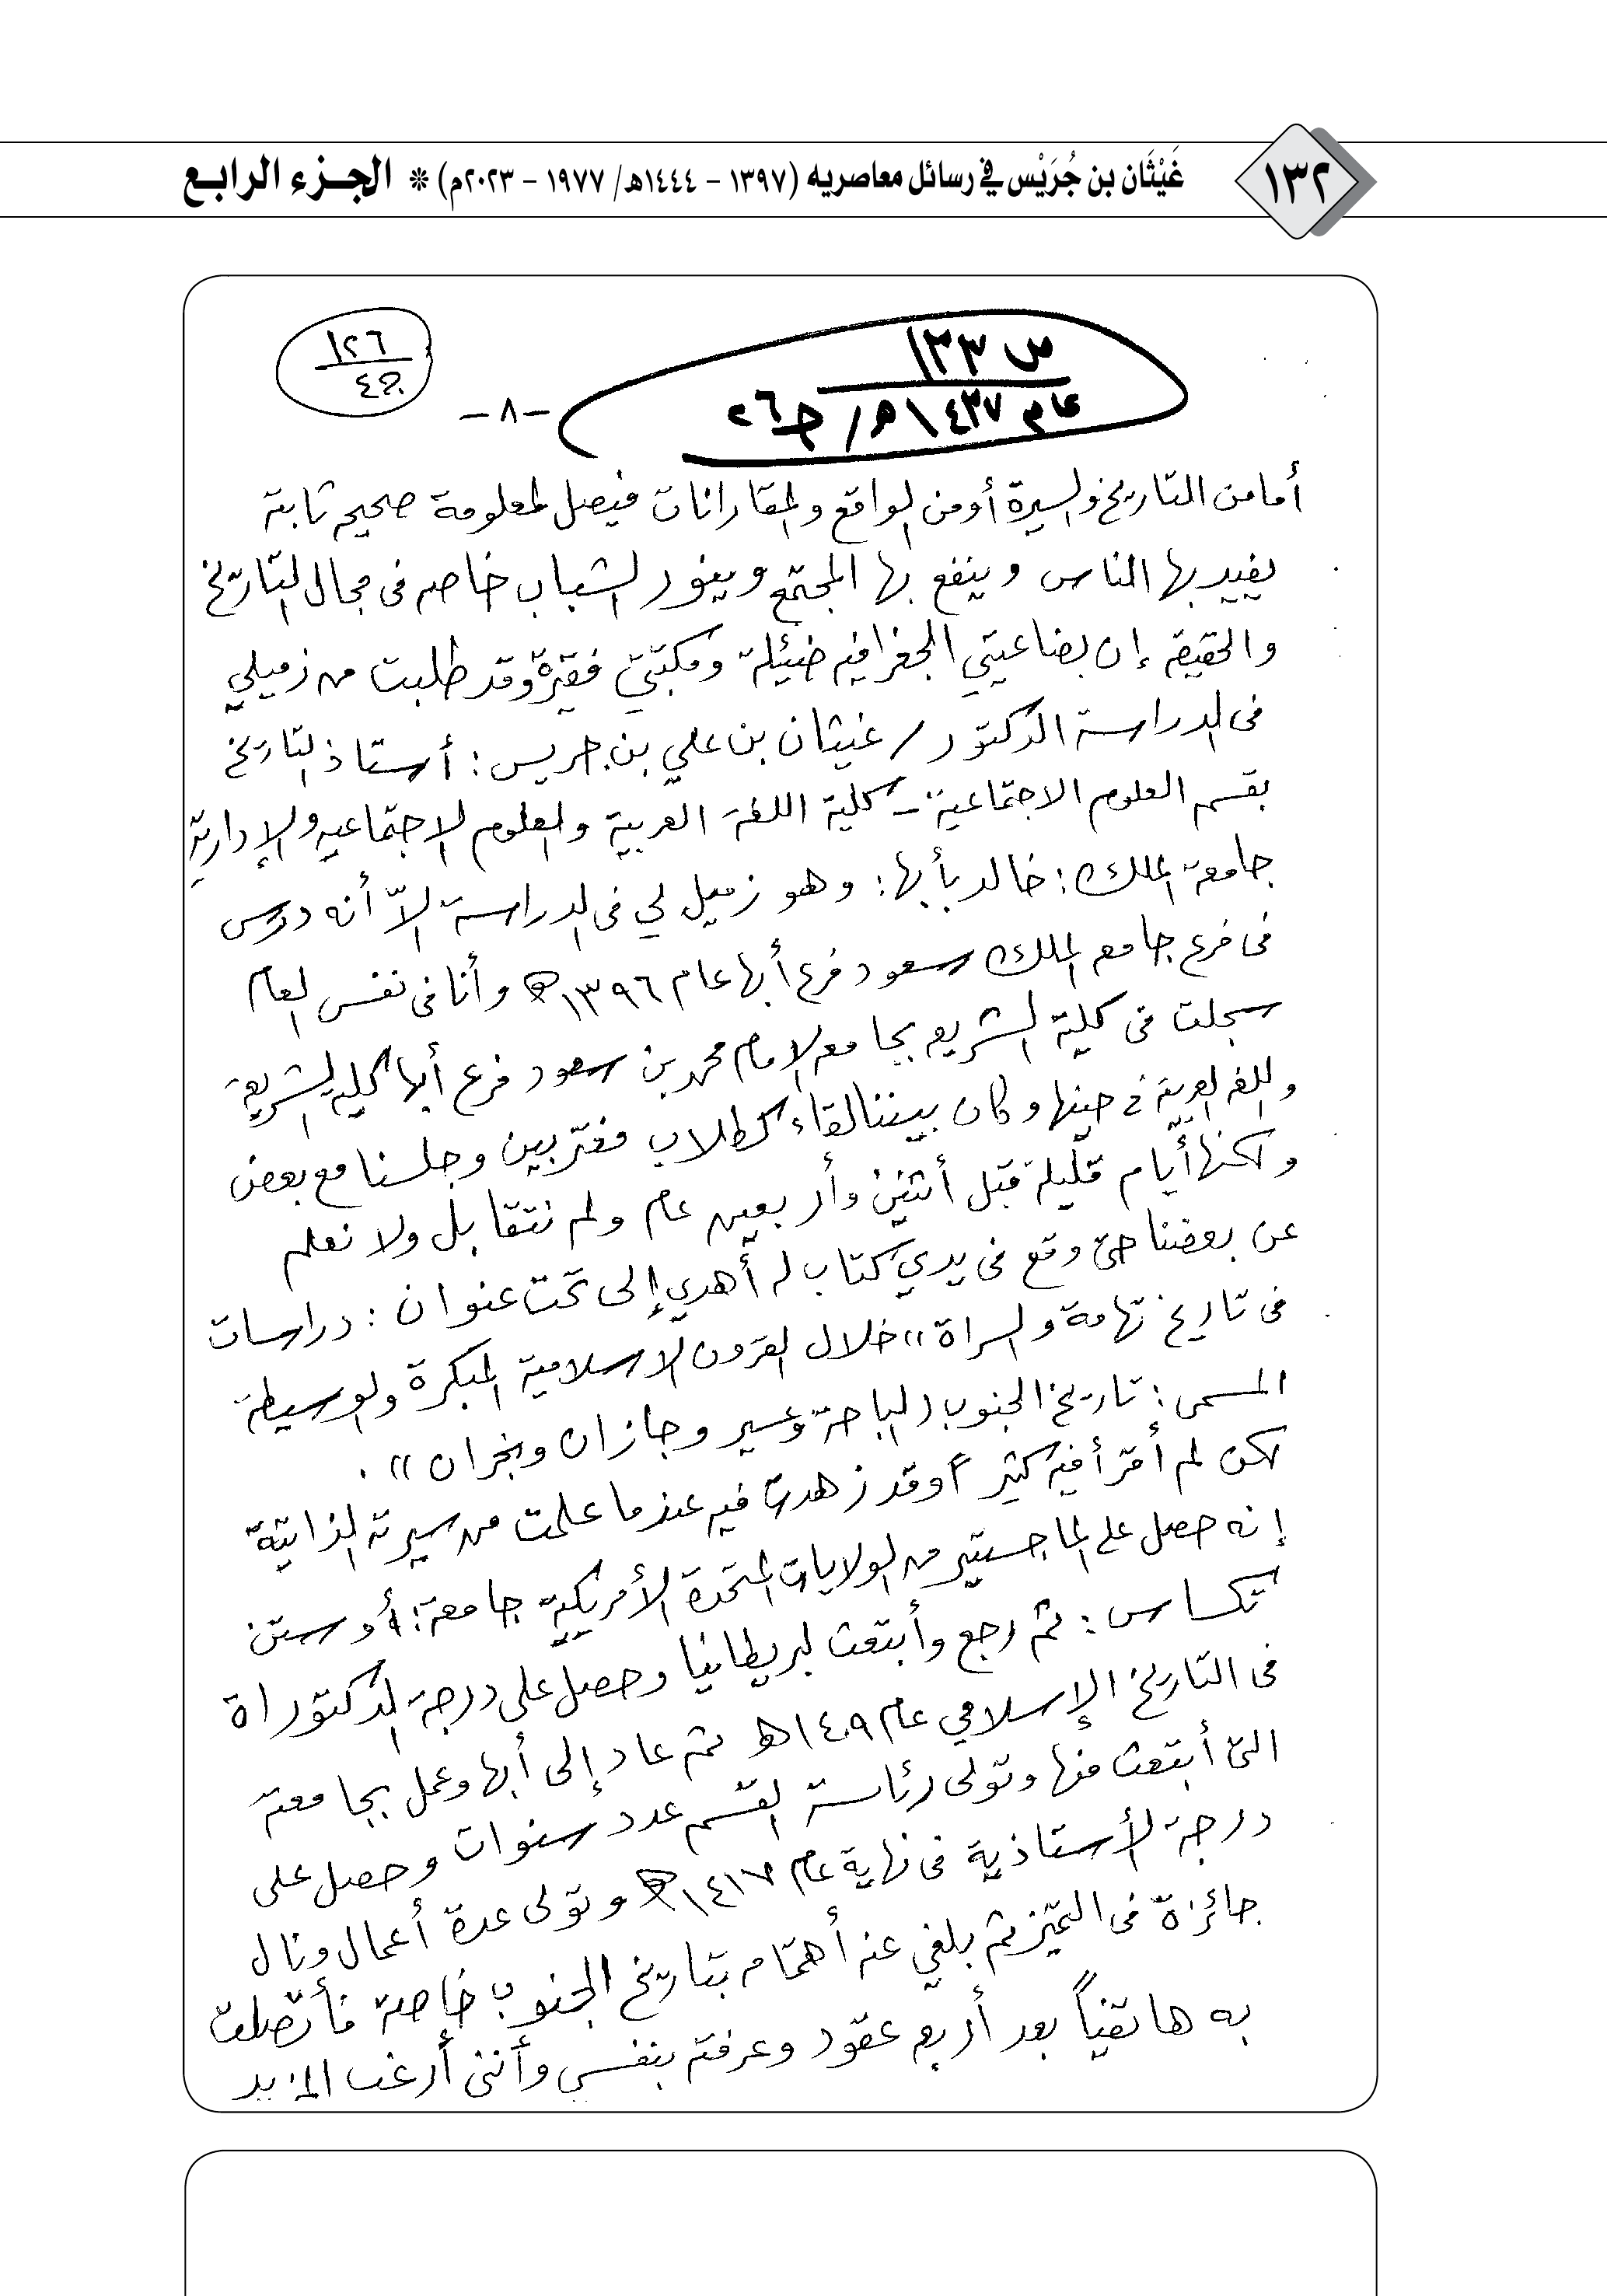 ١٣٢
غَيْثَان بن جُرَيْس في رسائل معاصريه (١٣٩٧ - ١٤٤٤هـ/ ١٩٧٧ - ٢٠٢٣م) * الجزء الرابع
ص ١٣٣
عام ١٤٣٧هـ/ ج٢٦
-٨-
١٢٦
ج٤
أما من التاريخ والسيرة أو من الواقع والمقارانات فيصل المعلومة صحيحه ثابتة
يفييد بها الناس وينفع بها المجتمع وينور الشباب خاصه فى مجال التاريخ
والحقيقه إن بضاعيتي الجغرافيه ضئيلة ومكتبتي فقيرة وقد طلبت من زميلي
فى الدراسة الدكتور / غيثان بن علي بن جريس : أستاذ التاريخ
بقسم العلوم الاجتماعية - كلية اللغة العربية والعلوم الاجتماعيه والإدارية
جامعة الملك : خالد بأبها : وهو زميل لي فى الدراسة الاّ أنه درس
فى فرع جامعه الملك سعود فرع أبها عام ١٣٩٦هـ وأنا فى نفس العام
سجلت فى كلية الشريعه بجامعه الامام محمد بن سعود فرع أبها كليه الشريعة
واللغه العربية في حينها وكان بيننا لقاء كطلاب مغتربين وجلسنا مع بعض
ولكنها أيام قليلة قبل أثنين وأربعين عام ولم نتقابل ولا نعلم
عن بعضنا حتى وقع فى يدي كتاب له أهدي إلى تحت عنوان : دراسات
فى تاريخ تهامة والسراة )) خلال القرون الاسلامية المبكرة والوسيطة
المسمى : تاريخ الجنوب ( الباحة وعسير وجازان ونجران )) .
لكن لم أقرأ فيه كثيراً وقد زهدت فيه عندما علمت من سيرته الذاتية
إنه حصل على الماجستير من الولايات المتحدة الأمريكية جامعة : أوستن
تكساس : ثم رجع وأبتعث لبريطانيا وحصل على درجة الدكتوراة
فى التاريخ الإسلامي عام ١٤٠٩هـ ثم عاد إلى أبها وعمل بجامعته
التى أبتعث منها وتولى رئاسة القسم عدد سنوات وحصل على
درجة الأستاذية فى نهاية عام ١٤١٧هـ وتولى عدة أعمال ونال
جائزة فى التميز ثم بلغني عنه أهتمام بتاريخ الجنوب خاصة فأتصلت
به هاتفياً بعد أربع عقود وعرفته بنفسي وأنني أرغب المزيد